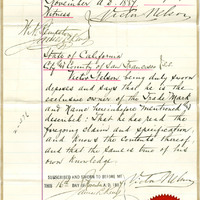 November 1887
Witness Victor Nelson
State of California
City & County of San Francisco } S.S.
Victor Nelson being duly sworn
deposes and says that he is the
exclusive owner of the Trade Mark
and Name hereinbefore mentioned &
described: That he has read the
foregoing claim and specification,
and knows the contents thereof,
and that the same is true of his
own Knowledge.
SUBSCRIBED AND SWORN TO BEFORE ME
THIS 16th DAY OF
Victor Nelson